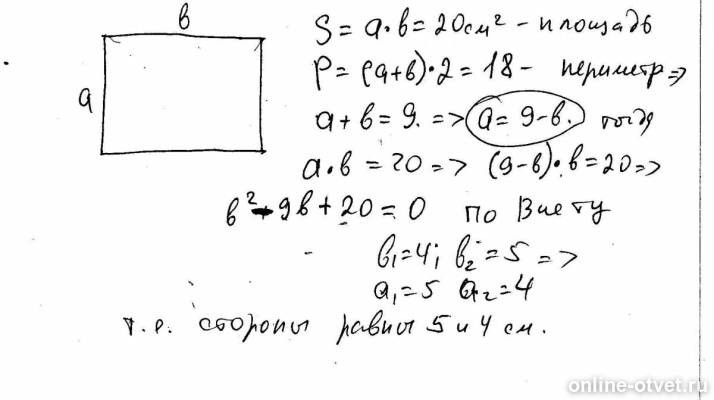 в
a
S = a·в = 20см² - площадь
P = (a+в)·2 = 18 - периметр =>
a + в = 9. => a = 9-в. тогда
a·в = 20 => (9-в)·в = 20 =>
в² - 9в + 20 = 0 по Виету
в₁=4; в₂=5 =>
a₁=5 a₂=4
т.е. стороны равны 5 и 4 см.
online-otvet.ru